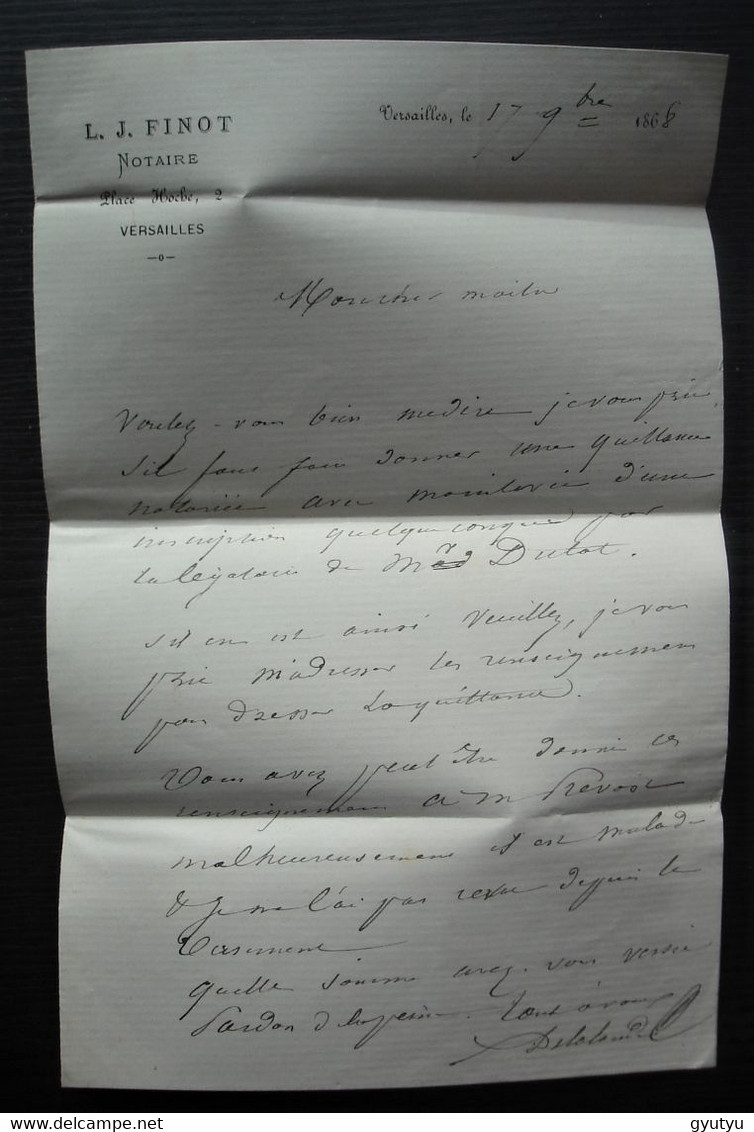 L. J. FINOT
NOTAIRE
Place Hoche, 2
VERSAILLES
Versailles, le 17 9bre 1868
Mon cher maitre
Voulez-vous bien me dire je vous prie
s'il faut faire donner une quittance
notariée avec mainlevée d'une
inscription quelquonque par
la légataire de Mr Dutot.
S'il en est ainsi veuillez, je vous
prie m'adresser les renseignemens
pour dresser la quittance.
Vous avez peut être donné ces
renseignemens a m Prévost
malheureusement il est malade
& je ne l'ai pas revu depuis le
versement
quelle somme avez-vous versée
Pardon de la peine. Tout à vous
Delalande
delcampe.net
gyutyu